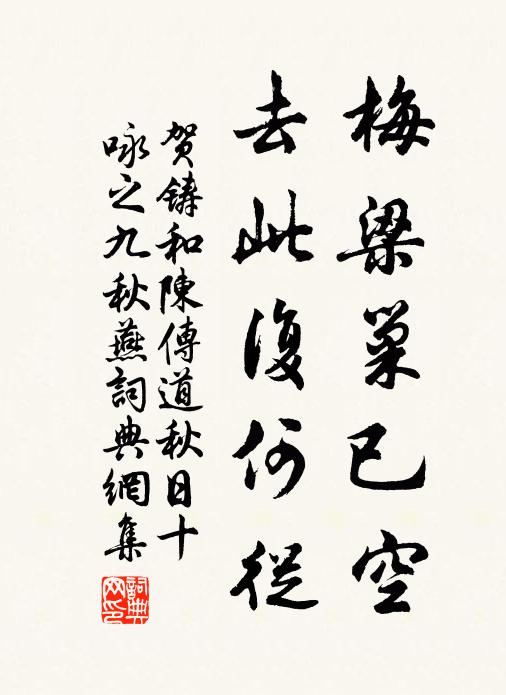 梅梁巢已空
去此復何從
贺鑄和陳傳道秋日十
咏之九秋燕詞典網集
詞典网印